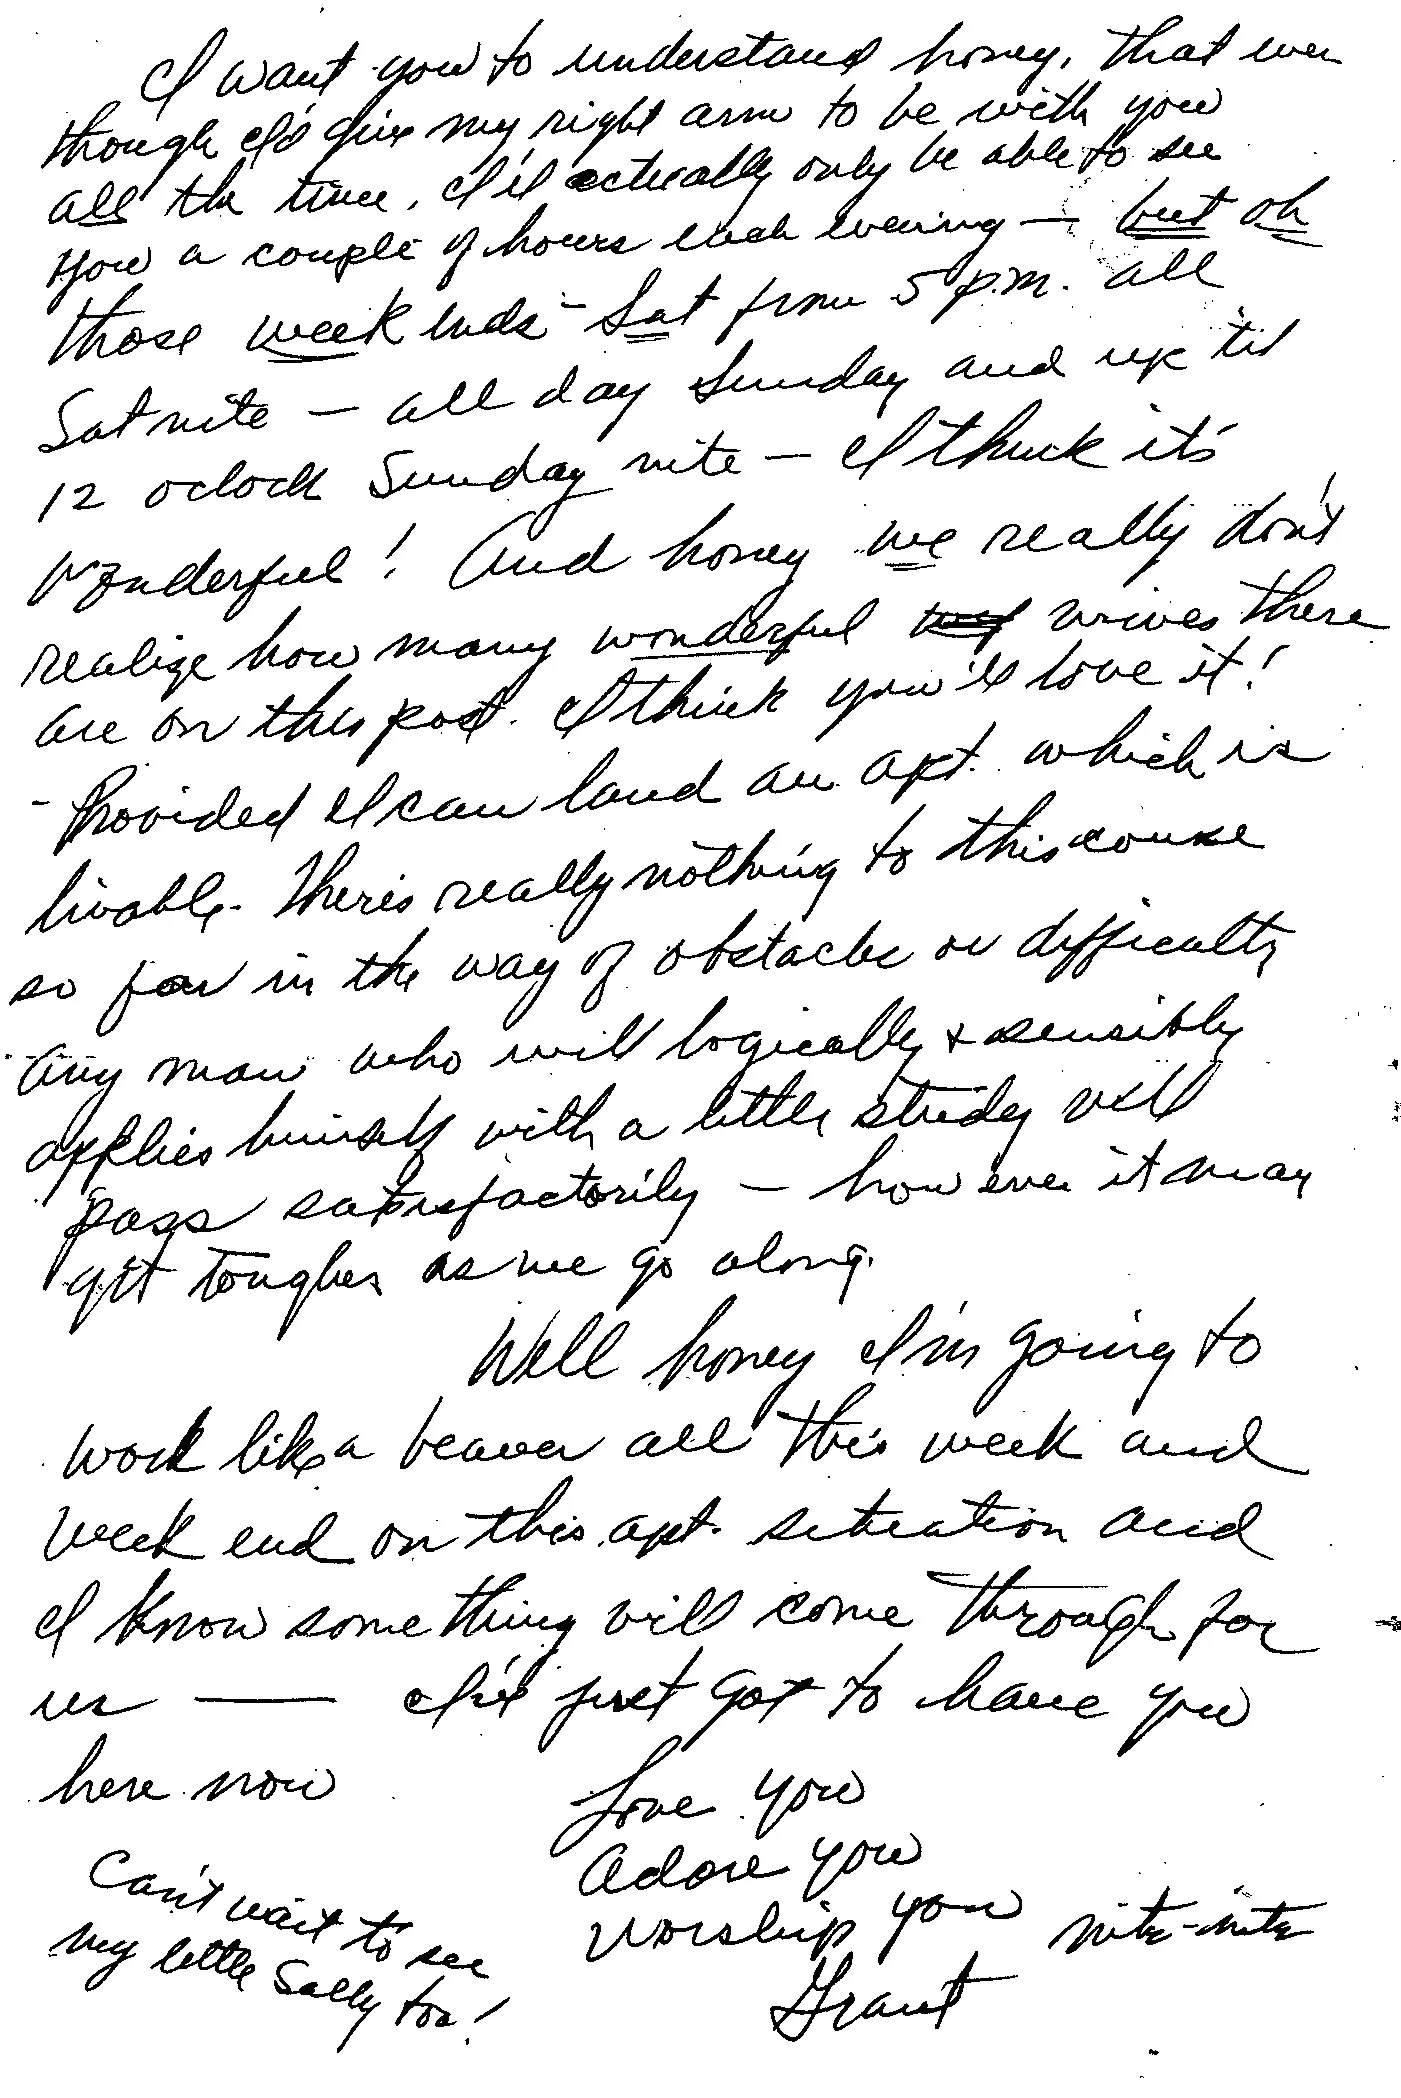 I want you to understand honey, that even
though I'd give my right arm to be with you
all the time, I'd actually only be able to see
you a couple of hours each evening — but oh
those week ends - Sat from 5 p.m. all
Sat nite — all day Sunday and up 'til
12 oclock Sunday nite — I think it's
wonderful! And honey we really don't
realize how many wonderful wives there
are on this post. I think you'll love it!
- Provided I can land an apt. which is
livable. There's really nothing to this course
so far in the way of obstacles or difficulty
any man who will logically & sensibly
applies himself with a little study will
pass satisfactorily — however it may
get tougher as we go along.
Well honey I'm going to
work like a beaver all this week and
week end on this apt. situation and
I know something will come through for
us — I've just got to have you
here now
Love you
Adore you
Worship you nite-nite
Grant
Can't wait to see
my little Sally too!